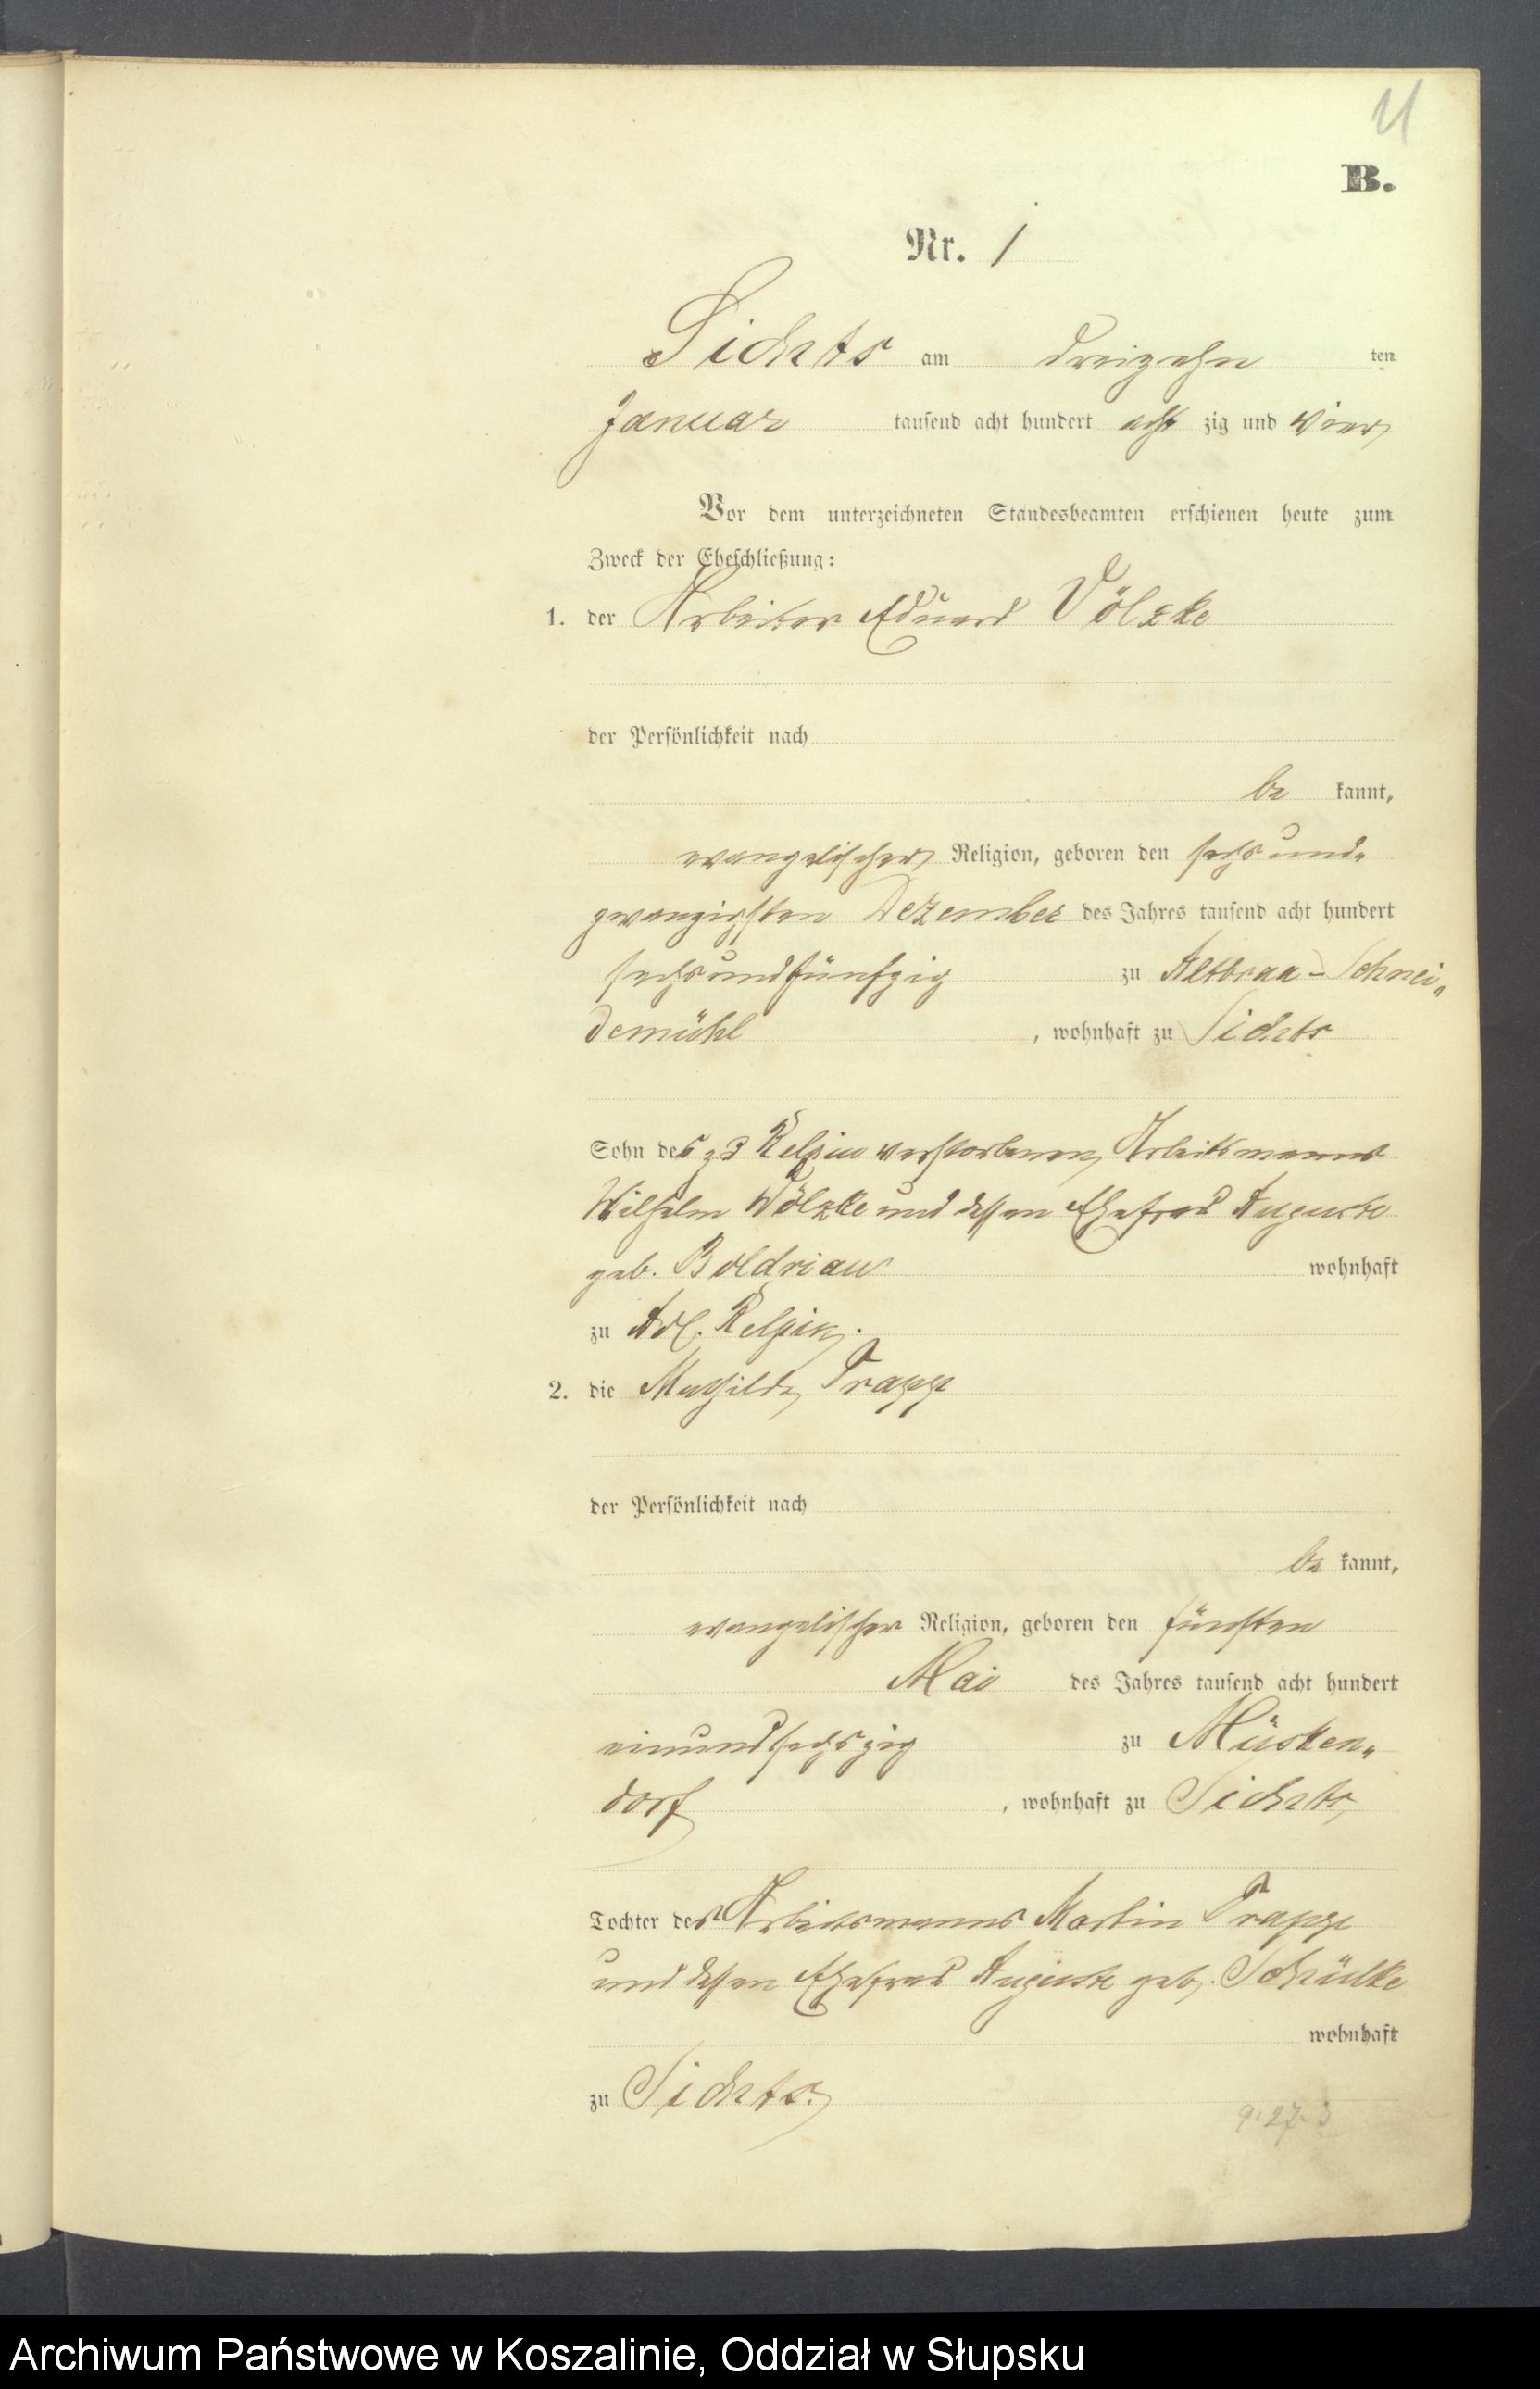 B.
Nr. 1
Sichts am dreizehn ten
Januar tausend acht hundert acht zig und vier
Vor dem unterzeichneten Standesbeamten erschienen heute zum
Zweck der Eheschließung:
1. der Arbeiter Eduard Völzke
der Persönlichkeit nach
be kannt,
evangelischer Religion, geboren den sechsund-
zwanzigsten Dezember des Jahres tausend acht hundert
sechsundfünfzig zu Altbraa-Schnei-
demühl , wohnhaft zu Sichts
Sohn des zu Relpin verstorbenen Arbeitsmanns
Wilhelm Völzke und dessen Ehefrau Auguste
geb. Boldrian wohnhaft
zu Adl. Relpin.
2. die Mathilde Trapp
der Persönlichkeit nach
be kannt,
evangelischer Religion, geboren den fünften
Mai des Jahres tausend acht hundert
einundsechszig zu Müsken-
dorf , wohnhaft zu Sichts,
Tochter des Arbeitsmanns Martin Trapp
und dessen Ehefrau Auguste geb. Schülke
wohnhaft
zu Sichts.
Archiwum Państwowe w Koszalinie, Oddział w Słupsku